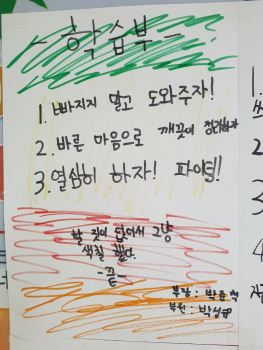 - 학습부 -
1. 빠지지 말고 도와주자!
2. 바른 마음으로 깨끗이 정리하자
3. 열심히 하자! 파이팅!
할 짓이 없어서 그냥
색칠 했다.
- 끝 -
부장 : 박준혁
부원 : 박성규